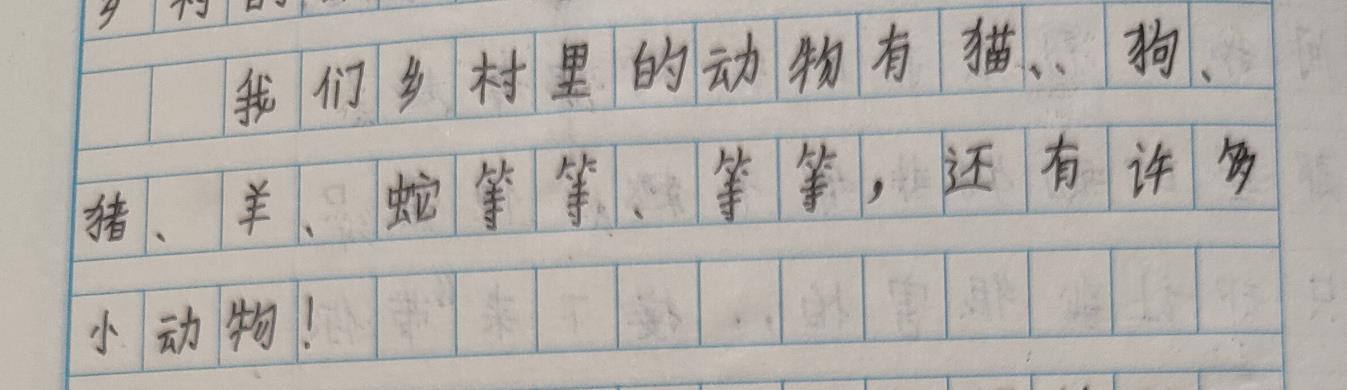 乡村的
我们乡村里的动物有猫、、狗、
猪、羊、蛇等等、等等，还有许多
小动物！